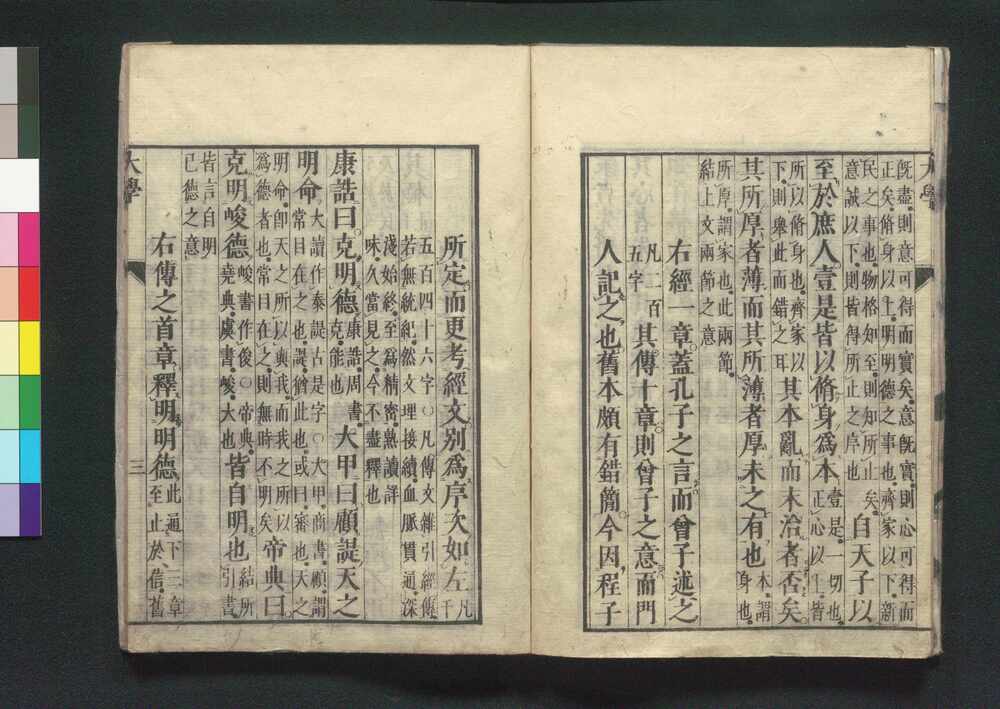 大學
既盡則意可得而實矣意既實則心可得而
正矣脩身以上明明德之事也齊家以下新
民之事也物格知至則知所止矣
意誠以下則皆得所止之序也
自天子以
至於庶人壹是皆以脩身爲本
壹是一切也
正心以上皆
所以脩身也齊家以
下則舉此而錯之耳
其本亂而末治者否矣
其所厚者薄而其所薄者厚未之有也
本謂
身也
所厚謂家也此兩節
結上文兩節之意
右經一章蓋孔子之言而曾子述之
凡二百
五字
其傳十章則曾子之意而門
人記之也舊本頗有錯簡今因程子
所定而更考經文別爲序次如左
凡
千
五百四十六字○凡傳文雜引經傳
若無統紀然文理接續血脈貫通深
淺始終至爲精密熟讀詳
味久當見之今不盡釋也
康誥曰克明德
康誥周書
克能也
大甲曰顧諟天之
明命
大讀作泰諟古是字○大甲商書顧謂
常目在之也諟猶此也或曰審也天之
明命卽天之所以與我而我之所以
爲德者也常目在之則無時不明矣
帝典曰
克明峻德
峻書作俊○帝典
堯典虞書峻大也
皆自明也
結所
引書
皆言自明
已德之意
右傳之首章釋明明德
此通下三章
至止於信舊
大學
三